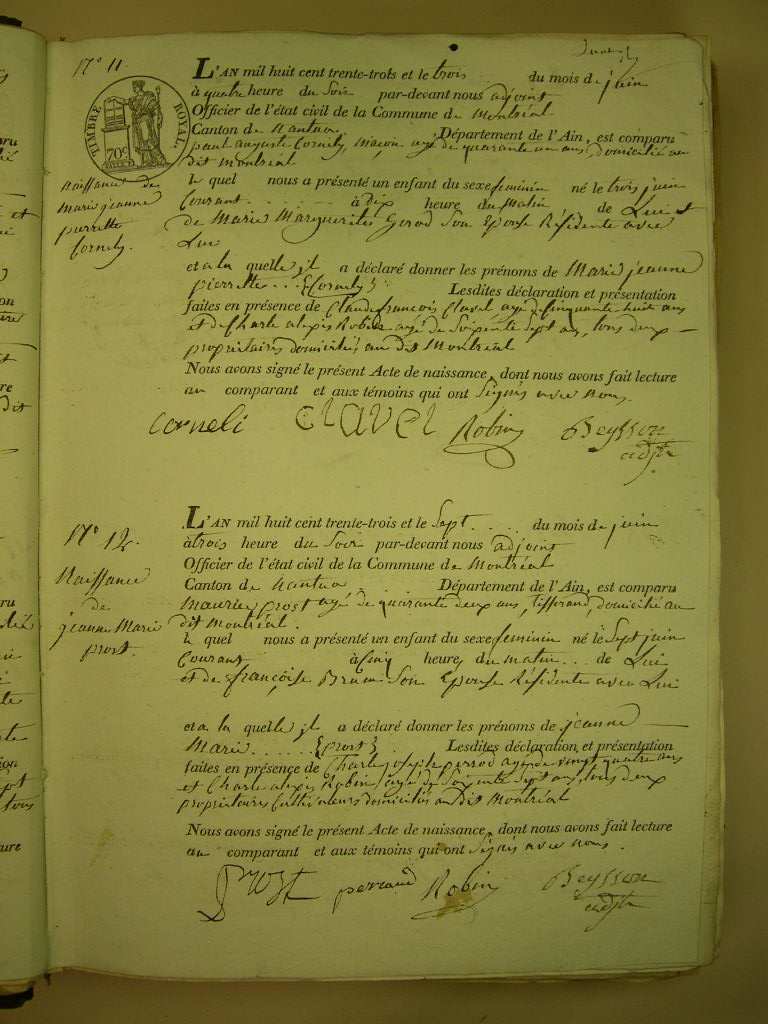 N° 11.
L'AN mil huit cent trente-trois et le trois du mois de juin
à quatre heure du Soir par-devant nous adjoint
Officier de l'état civil de la Commune de Montréal
Canton de Nantua Département de l'Ain, est comparu
paul auguste Cornely Maçon agé de quarante un ans, domicilié au
dit Montréal
TIMBRE ROYAL
70c
Naissance de
marie jeanne
pierrette
Cornely.
le quel nous a présenté un enfant du sexe feminin né le trois juin
Courant à dix heure du Matin de Lui et
de Marie Marguerite Gerod Son Epouse Résidente avec
Lui
et a la quelle jl a déclaré donner les prénoms de Marie jeanne
pierrette {Cornely} Lesdites déclaration et présentation
faites en présence de Claude françois Clavel agé de Cinquante huit ans
et de Charle alexis Robin agé de Soixente Sept ans, tous deux
propriétaires domiciliés au dit Montréal
Nous avons signé le présent Acte de naissance, dont nous avons fait lecture
au comparant et aux témoins qui ont Signés avec nous.
corneli Clavel Robin Beysson
adjt
N° 12.
L'AN mil huit cent trente-trois et le Sept du mois de juin
à trois heure du Soir par-devant nous adjoint
Officier de l'état civil de la Commune de Montréal
Canton de Nantua Département de l'Ain, est comparu
Maurice prost agé de quarante deux ans, tisserand, domicilié au
dit Montréal.
Naissance
de
jeanne Marie
prost.
le quel nous a présenté un enfant du sexe feminin né le Sept juin
Courant à Cinq heure du matin de Lui
et de françoise Brun Son Epouse Résidente avec Lui
et a la quelle jl a déclaré donner les prénoms de jeanne
Marie {prost} Lesdites déclaration et présentation
faites en présence de Charle joseph perrod agé de vingt quatre ans
et Charle alexis Robin agé de Soixente Sept ans, tous deux
propriétaires Cultivateurs domiciliés au dit Montréal
Nous avons signé le présent Acte de naissance, dont nous avons fait lecture
au comparant et aux témoins qui ont Signés avec nous.
Prost Robin Beysson
adjt